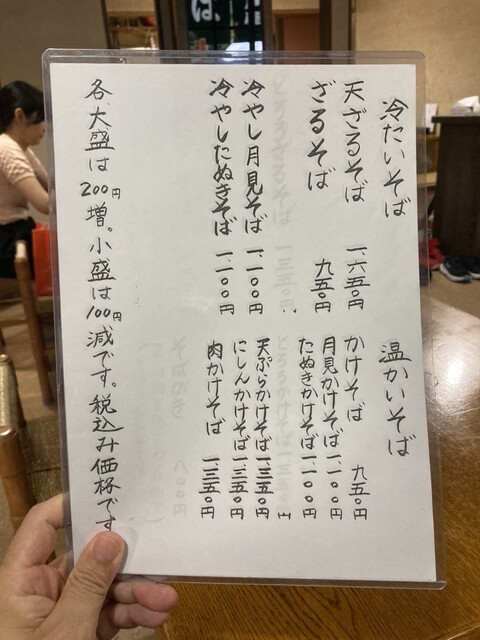 冷たいそば
天ざるそば 一、六五〇円
ざるそば 九五〇円
冷やし月見そば 一、一〇〇円
冷やしたぬきそば 一、一〇〇円
温かいそば
かけそば 九五〇円
月見かけそば 一、一〇〇円
たぬきかけそば 一、一〇〇円
天ぷらかけそば 一、三五〇円
にしんかけそば 一、三五〇円
肉かけそば 一、三五〇円
各、大盛は200円増。小盛は100円減です。税込み価格です